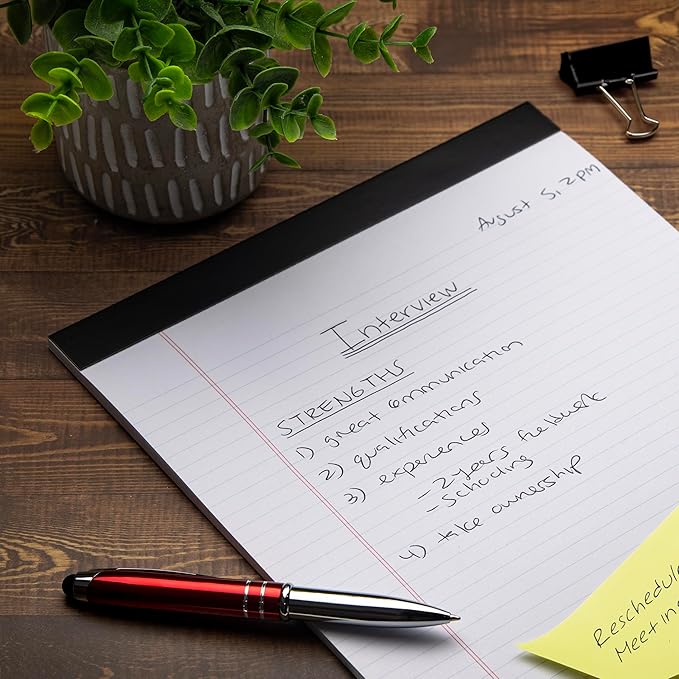 August 5, 2PM
Interview
STRENGTHS
1) great communication
2) qualifications
3) experiences
- 2 years fieldwork
- Schooling
4) take ownership
Reschedule
Meeting